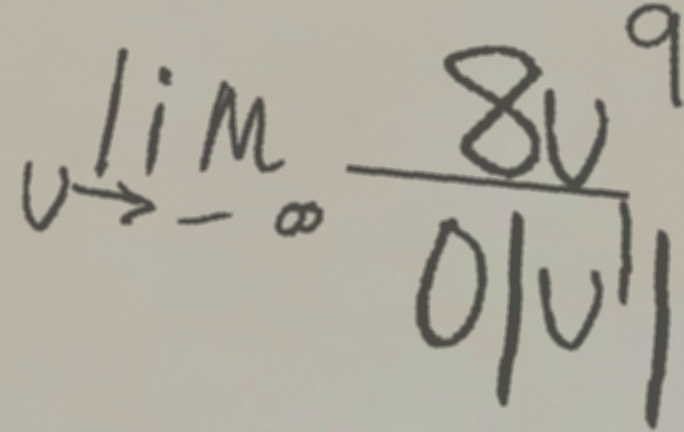 \lim_{v \to -\infty} \frac{8v^9}{0|v^1|}